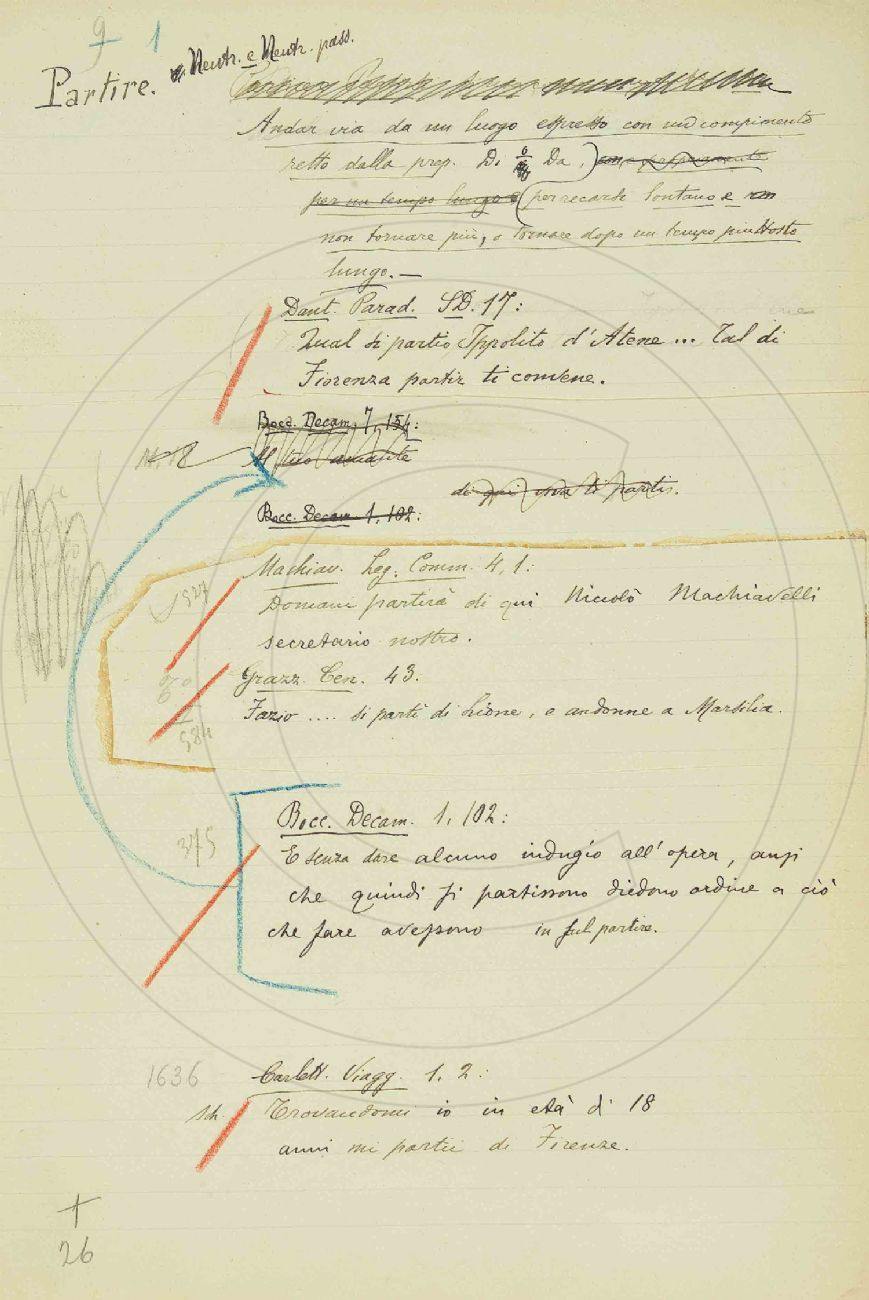 9 1
Partire. Neutr. e Neutr. pass.
Andar via da un luogo espresso con un compimento
retto dalla prep. Di o Da,
per un tempo lungo e per recarsi lontano e non
non tornare più, o tornare dopo un tempo piuttosto
lungo. —
Dant. Parad. SD. 17:
Qual si partio Ippolito d'Atene ... Tal di
Fiorenza partir ti convene.
Bocc. Decam. 7, 154:
Il tuo amante
di qui ti partis.
Bocc. Decam 1, 102:
Machiav. Leg. Comm. 4, 1:
527
Domani partirà di qui Niccolò Machiavelli
secretario nostro.
Grazz. Cen. 43.
Fazio .... si partì di Lione, e andonne a Marsilia.
584
Bocc. Decam. 1, 102:
375
E senza dare alcuno indugio all'opera, anzi
che quindi si partissono diedono ordine a ciò
che fare avessono in sul partire.
1636 Carlett. Viagg. 1. 2:
Sch. Trovandomi io in età di 18
anni mi partii di Firenze.
26